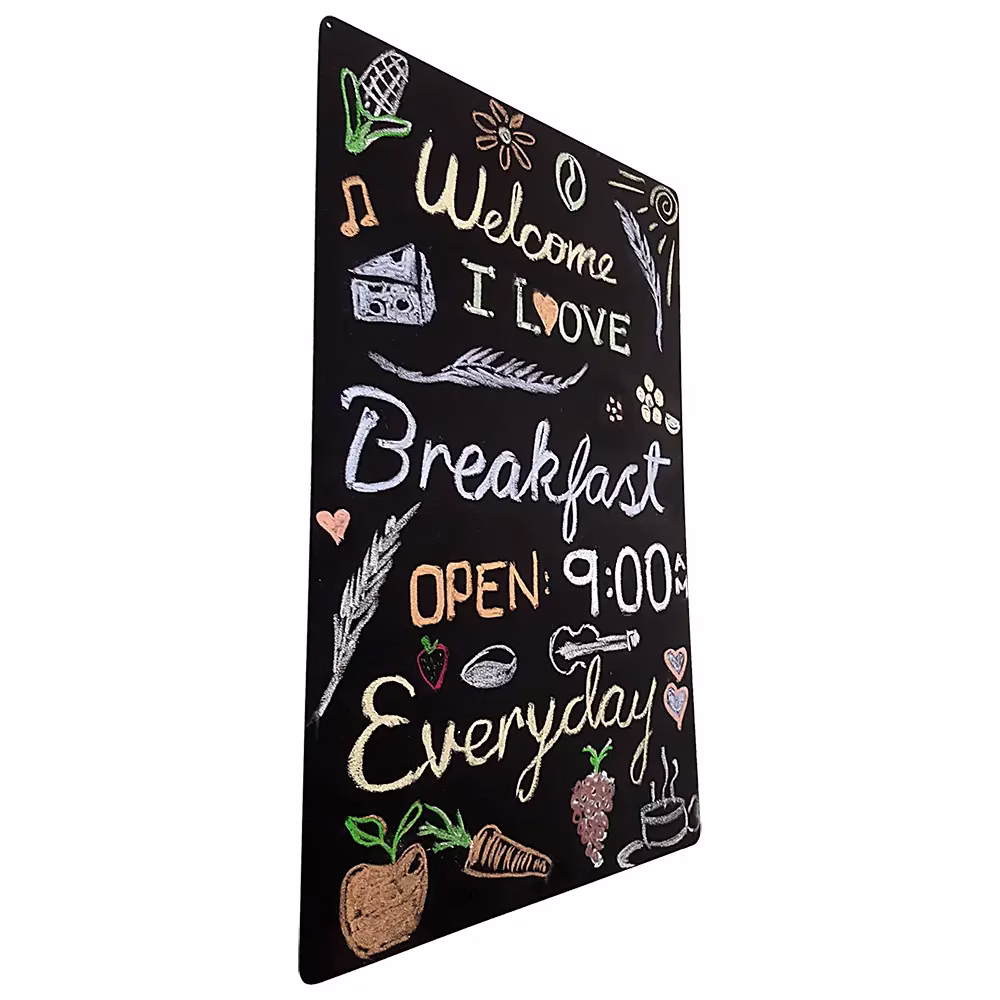 Welcome
I LOVE
Breakfast
OPEN: 9:00AM
Everyday